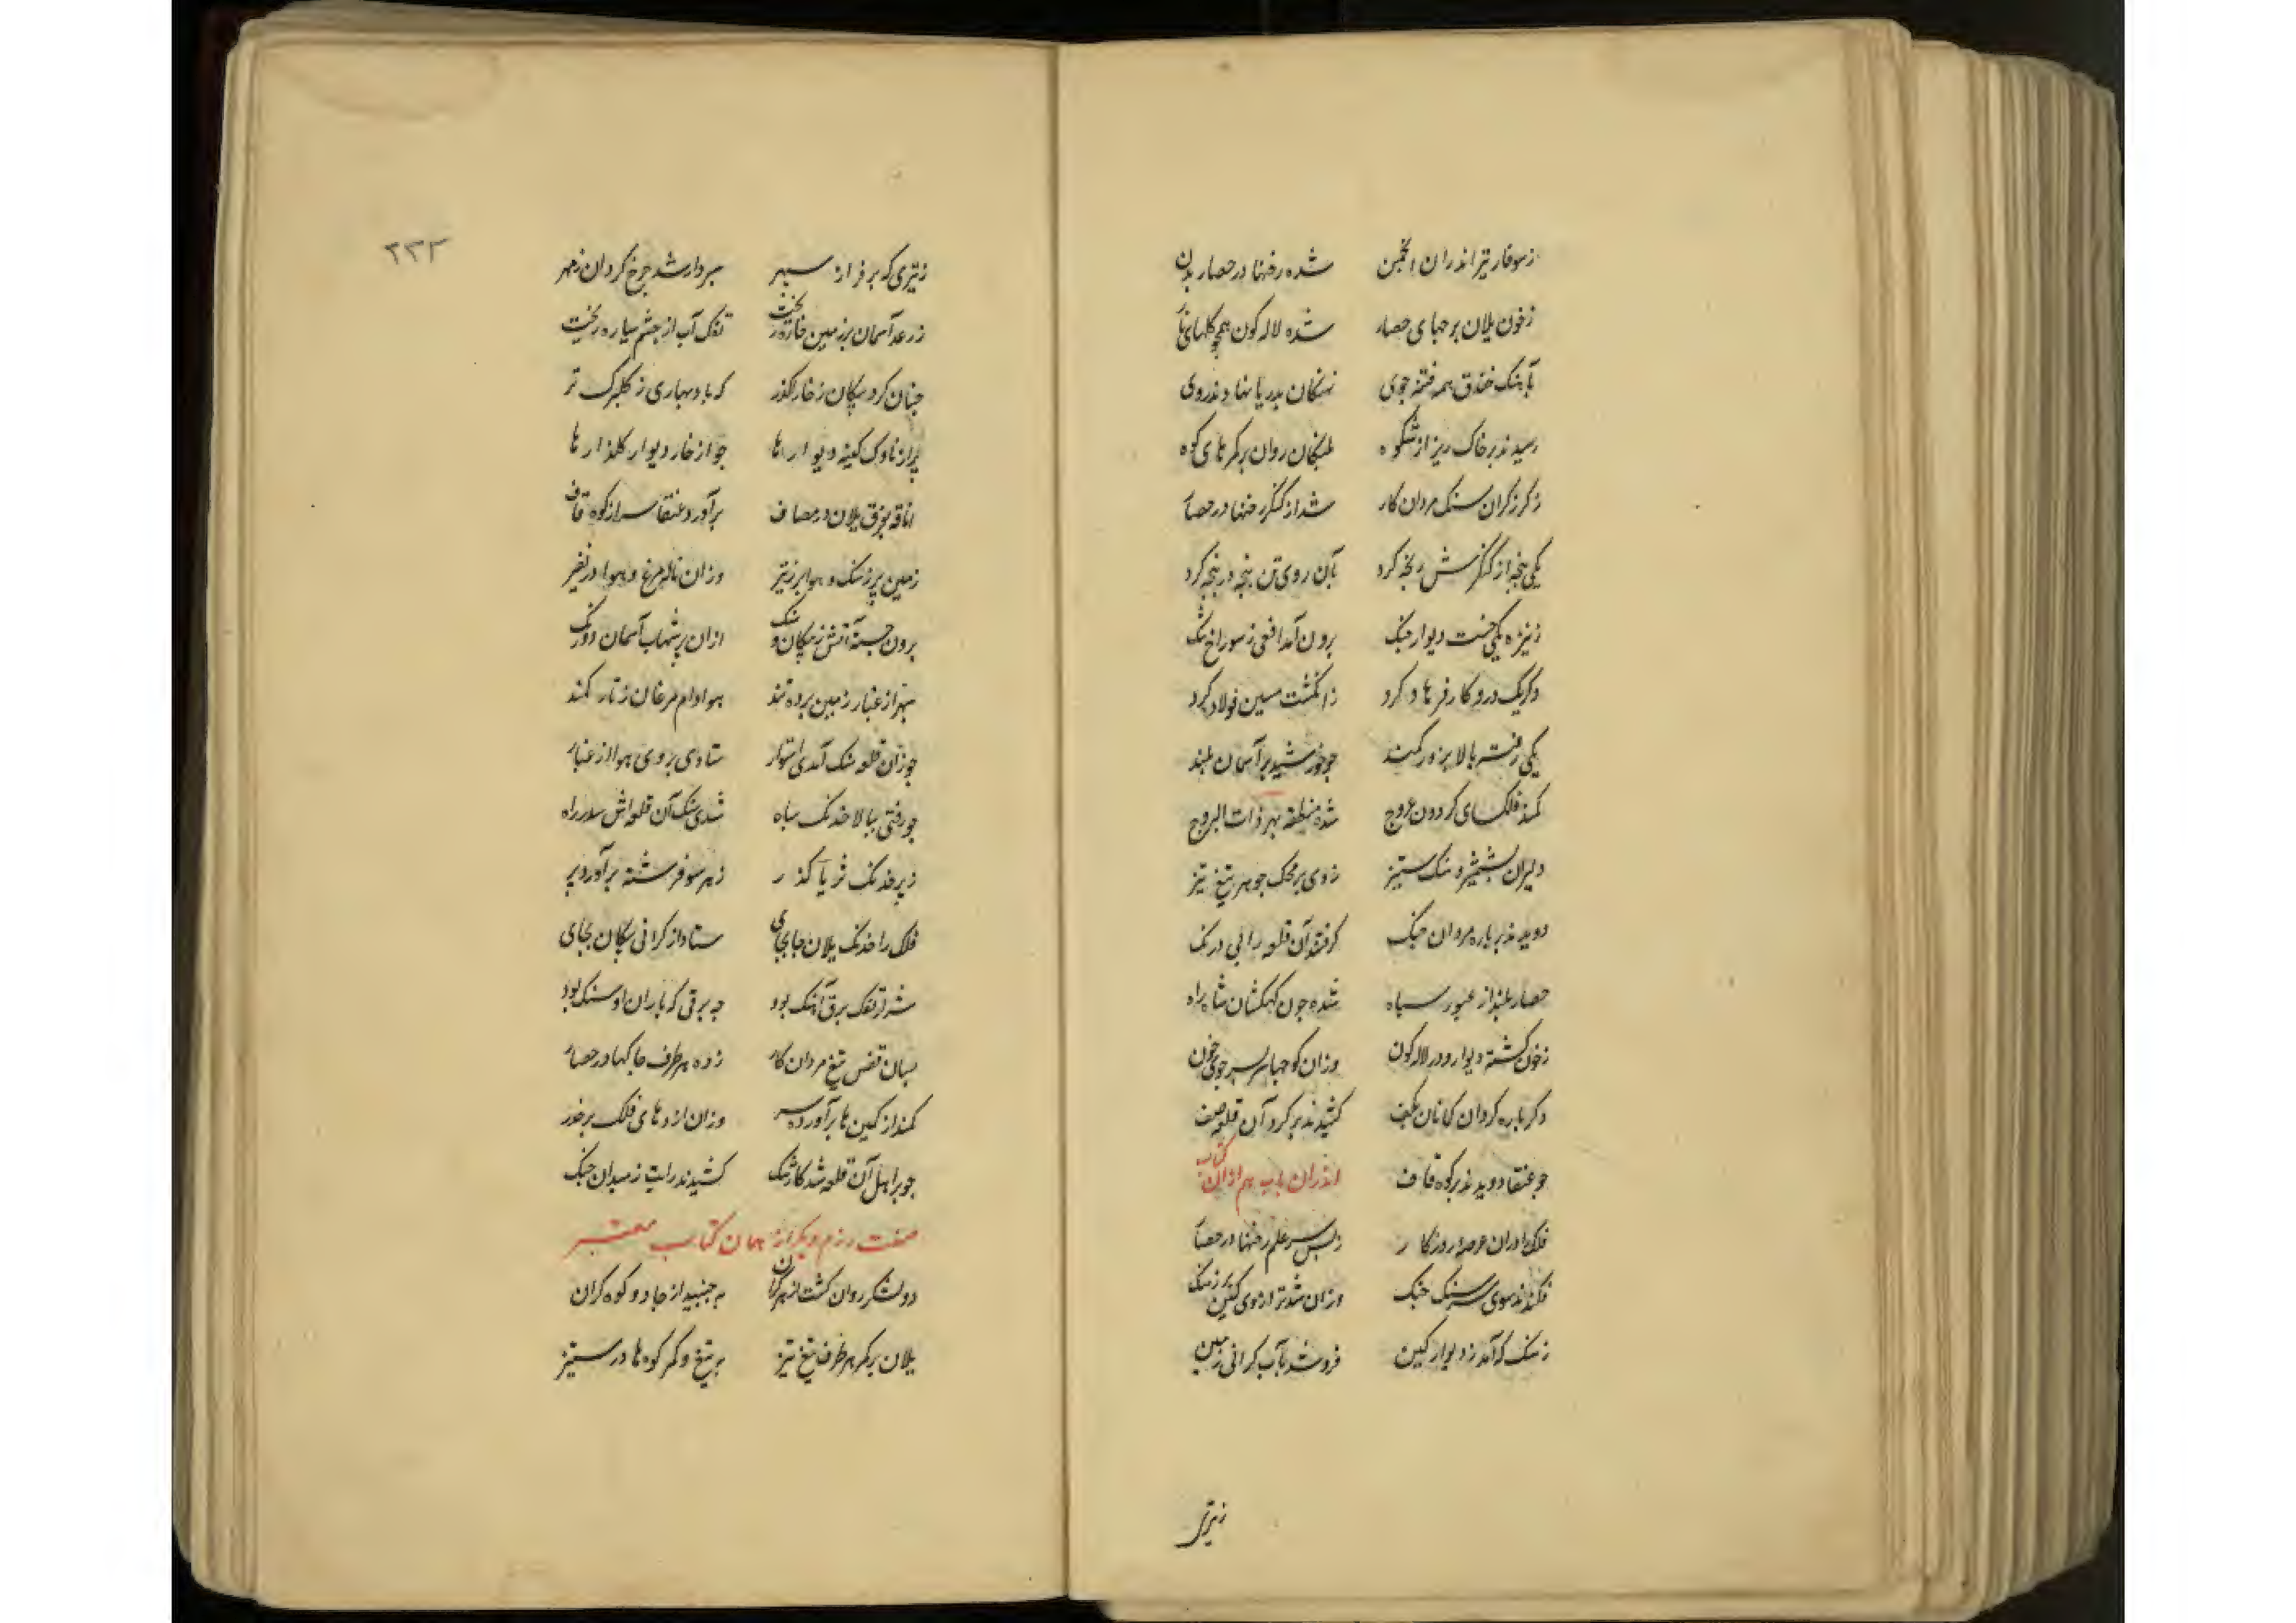 ز سوفار تیر اندران انجمن شده رخنها در حصار بدن
ز خون یلان برجهای حصار شده لاله کون همچو کلهای نار
بآهنک خندق همه فتنه جوی نهنکان بدریا نهادند روی
رسیدند بر خاک ریز از شکوه پلنکان روان بر کمرهای کوه
ز کرز کران سنک مردان کار شد از کنکر رخنها در حصار
یکی پنجه از کنکرش رنجه کرد بآن روی تن پنجه در پنجه کرد
ز نیزه یکی خست دیوار جنک برون آمد افعی ز سوراخ تنک
دکر یک درو کار فرهاد کرد ز انکشت مسین فولاد کرد
یکی رفته بالا بزور کمند چو خورشید بر آسمان بلند
کمند فلک سای کردون عروج شده منطقه بهر ذات البروج
دلیران بشمشیر و سنک ستیز زدی بر محک جوهر تیغ تیز
دویدند بر باره مردان جنک کرفتند آن قلعه را بی درنک
حصار بلند از عبور سپاه شده چون کهکشان شاه راه
ز خون کشته دیوار و در لاله کون وزان کوچها سربسر جوی خون
دکرباره کردان کمانان بکف کشیدند بر کرد آن قلعه صف
چو عنقا دویدند بر کوه قاف
اندران باب هم ازان کتاب
فلک را دران عرصه روزکار ز بس سر علم رخنها در حصار
فکندند سوی سر سنک جنک وزان شد ترازوی کین
ز سنک که آمد ز دیوار کین فرو شد بآب کرانی زمین
زتیری
۲۳۲
ز تیری که بر فراز سپهر سپردار شد چرخ کردان ز مهر
ز رعد آسمان بر زمین خاره ریخت تفک آب از چشم سیاره ریخت
چنان کرد پیکان ز خارا کذر که باد بهاری ز کلبرک تر
پر از ناوک کینه دیوارها چو از خار دیوار کلذارها
اتاقه بفرق یلان در مصاف برآورد عنقا سر از کوه قاف
زمین پر ز سنک و هوا پر ز تیر وزان ناله مرغ و هوا در نفیر
برون جسته آتش ز پیکان و سنک ازان پر شهاب آسمان دو رنک
سپهر از غبار زمین پرده بند هوا دام مرغان ز تار کمند
چو زان قلعه سنک آمدی استوار ستادی بروی هوا از غبار
چو رفتی ببالا خدنک سپاه شدی سنک آن قلعه اش سد راه
ز پر خدنک ثریا کذر ز هر سو فرشته برآورد پر
فلک را خدنک یلان جابجای ستاد از کرانی پیکان بجای
شرار تفک برق آهنک بود چه برقی که باران او سنک بود
بسان قفس تیغ مردان کار زده هر طرف چاکها در حصار
کمند از کمین ها برآورده سر وزان اژدهای فلک برحذر
چو بر اهل آن قلعه شد کار تنک کشیدند رایت ز میدان جنک
صفت رزم دیکر از همان کتاب معتبر
دو لشکر روان کشت از هر کران بجنبید از جا دو کوه کران
یلان بر کمر هر طرف تیغ تیز بر تیغ و کمر کوه ها در ستیز